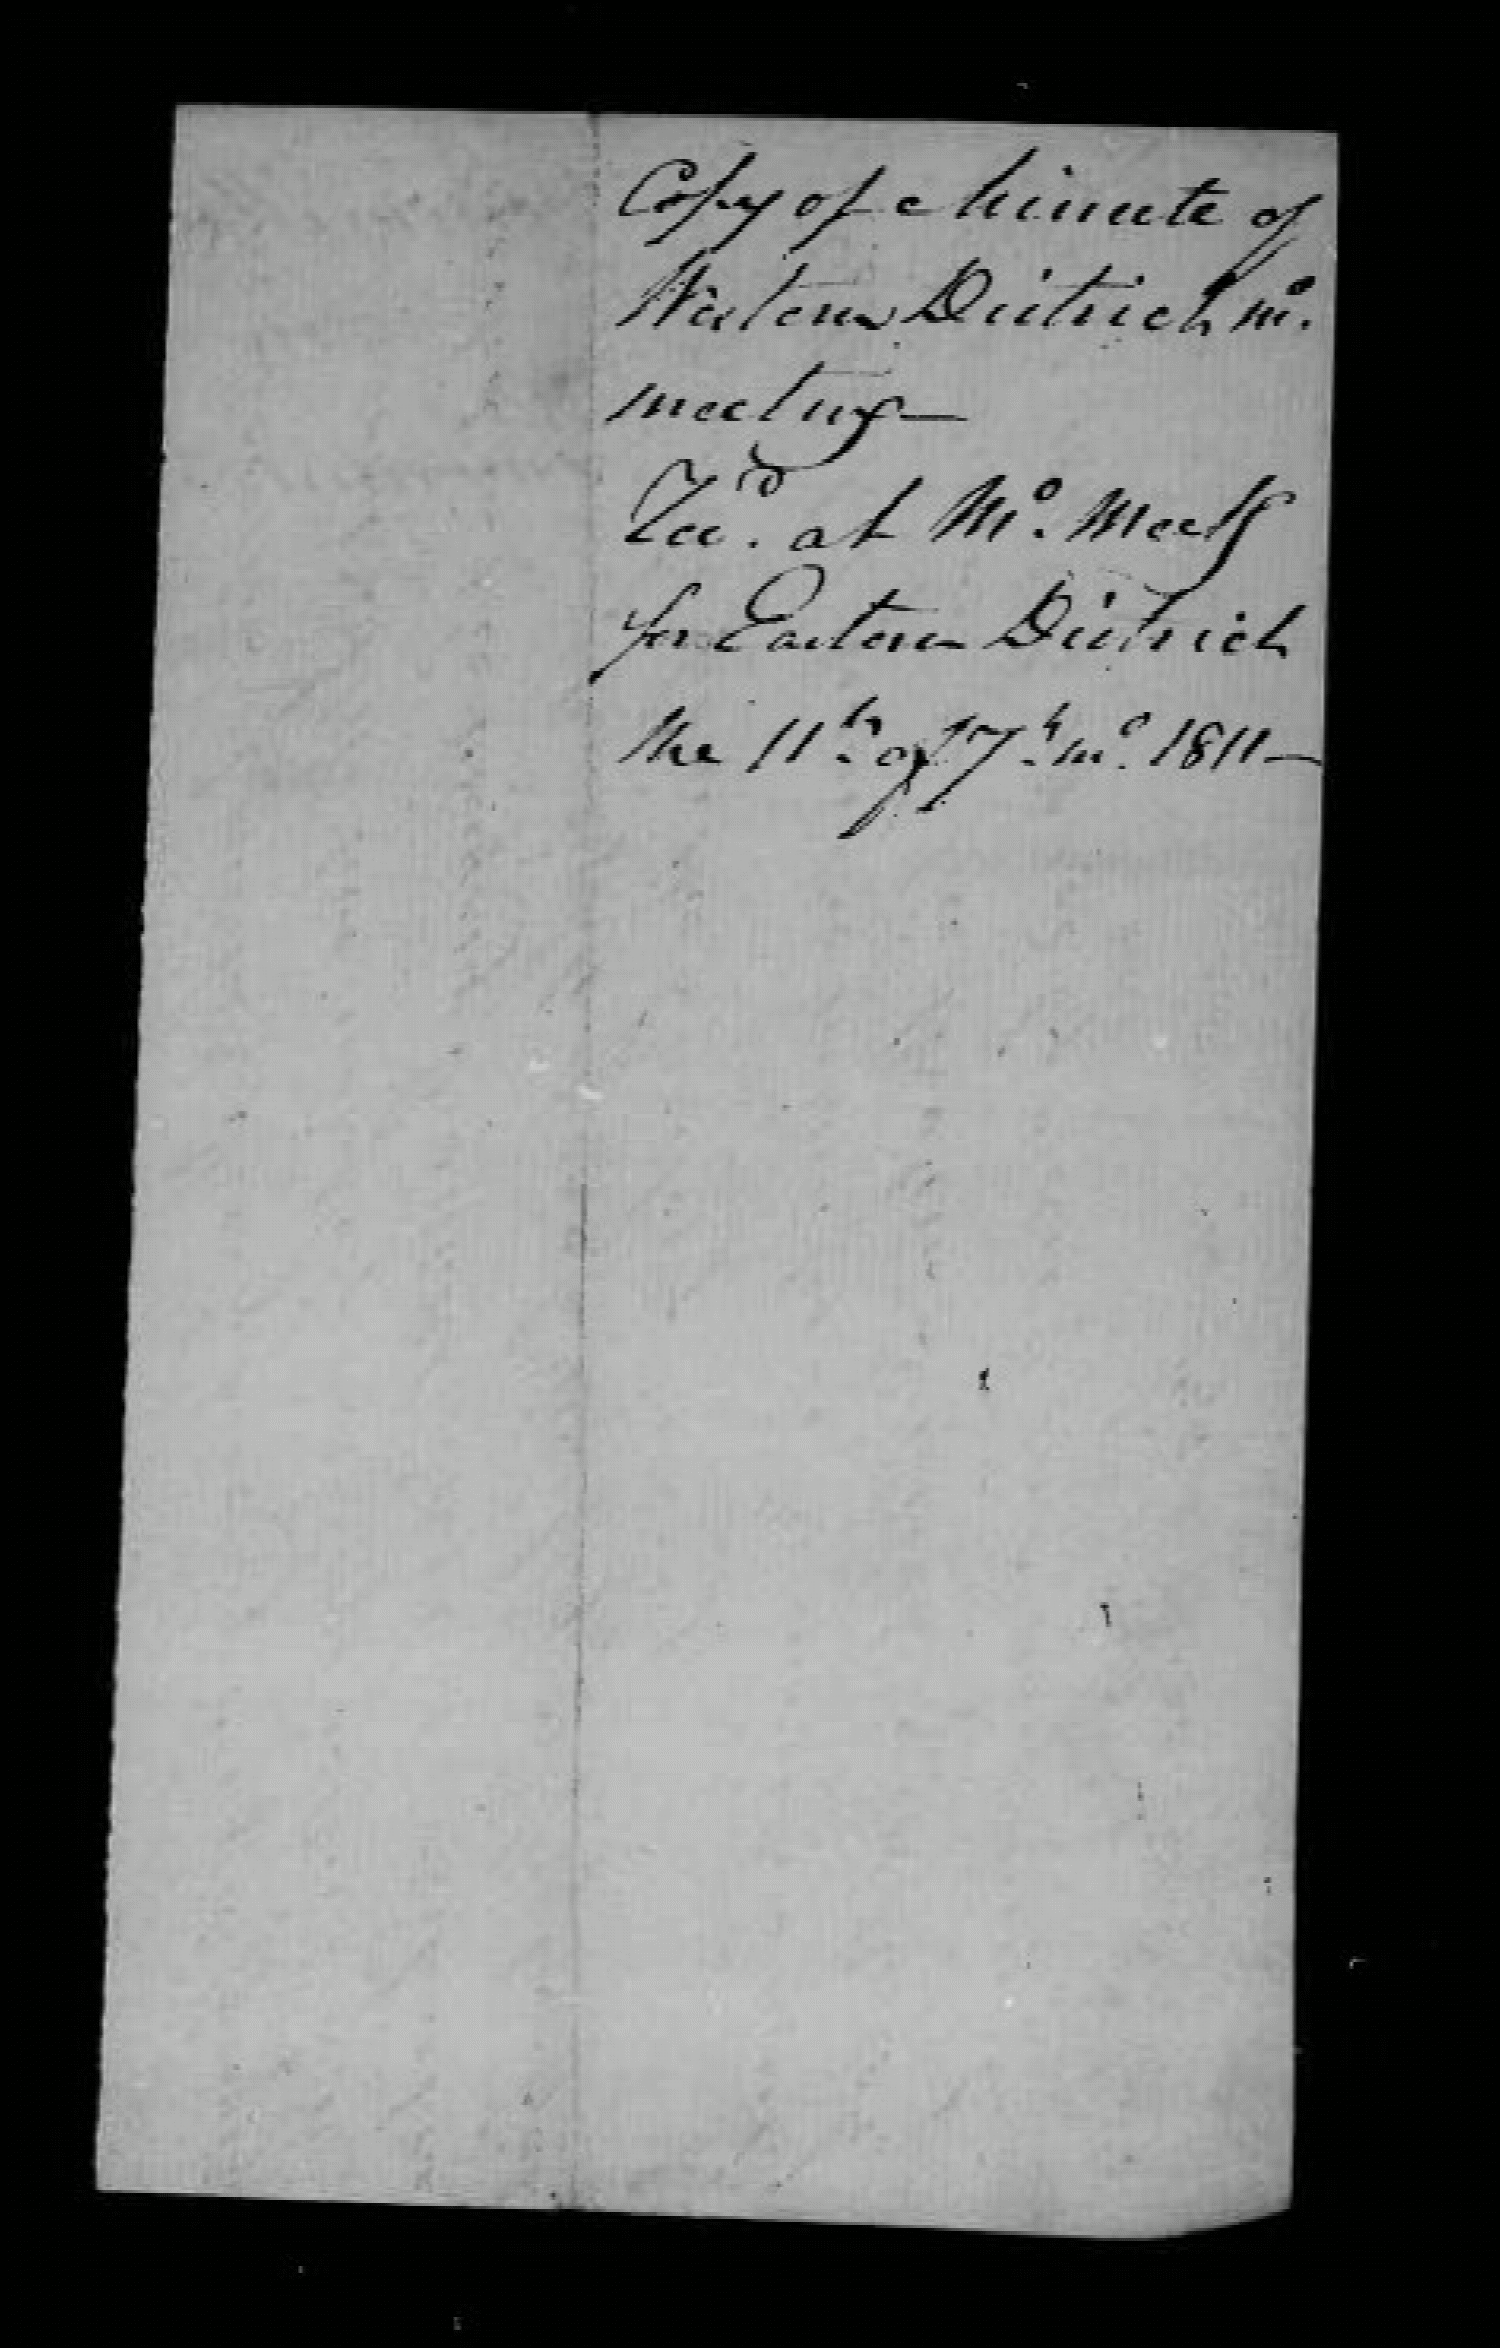 Copy of a Minute of
Western District mo.
meeting—
Rec'd. at Mo. Meetg
for Eastern District
the 11th of 7th mo. 1811—